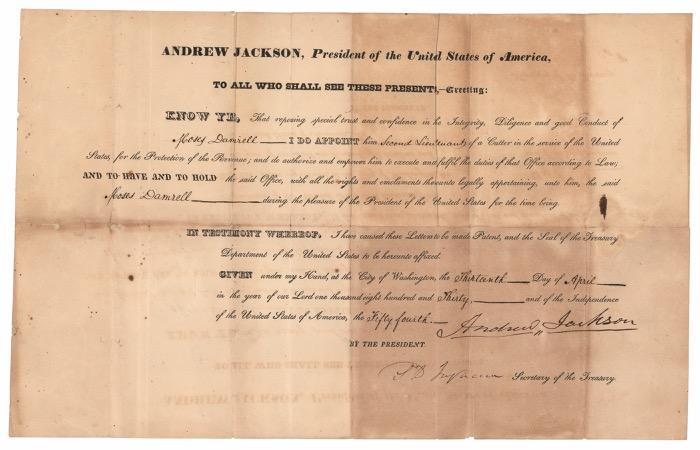 ANDREW JACKSON, President of the United States of America,
TO ALL WHO SHALL SEE THESE PRESENTS,—Greeting:
KNOW YE, That reposing special trust and confidence in he Integrity, Diligence and good Conduct of
Moses Damrell I DO APPOINT him Second Lieutenant of a Cutter in the service of the United
States, for the Protection of the Revenue; and do authorize and empower him to execute and fulfil the duties of that Office according to Law;
AND TO HAVE AND TO HOLD the said Office, with all the rights and emoluments thereunto legally appertaining, unto him, the said
Moses Damrell during the pleasure of the President of the United States for the time being.
IN TESTIMONY WHEREOF, I have caused these Letters to be made Patent, and the Seal of the Treasury
Department of the United States to be hereunto affixed.
GIVEN under my Hand, at the City of Washington, the Thirteenth Day of April
in the year of our Lord one thousand eight hundred and Thirty, and of the Independence
of the United States of America, the Fifty fourth.
Andrew Jackson
BY THE PRESIDENT
Secretary of the Treasury.